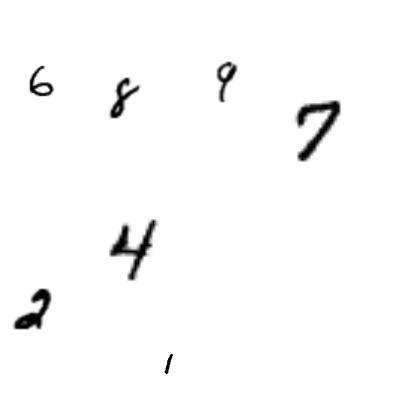 6 8 9 7
4
2
1